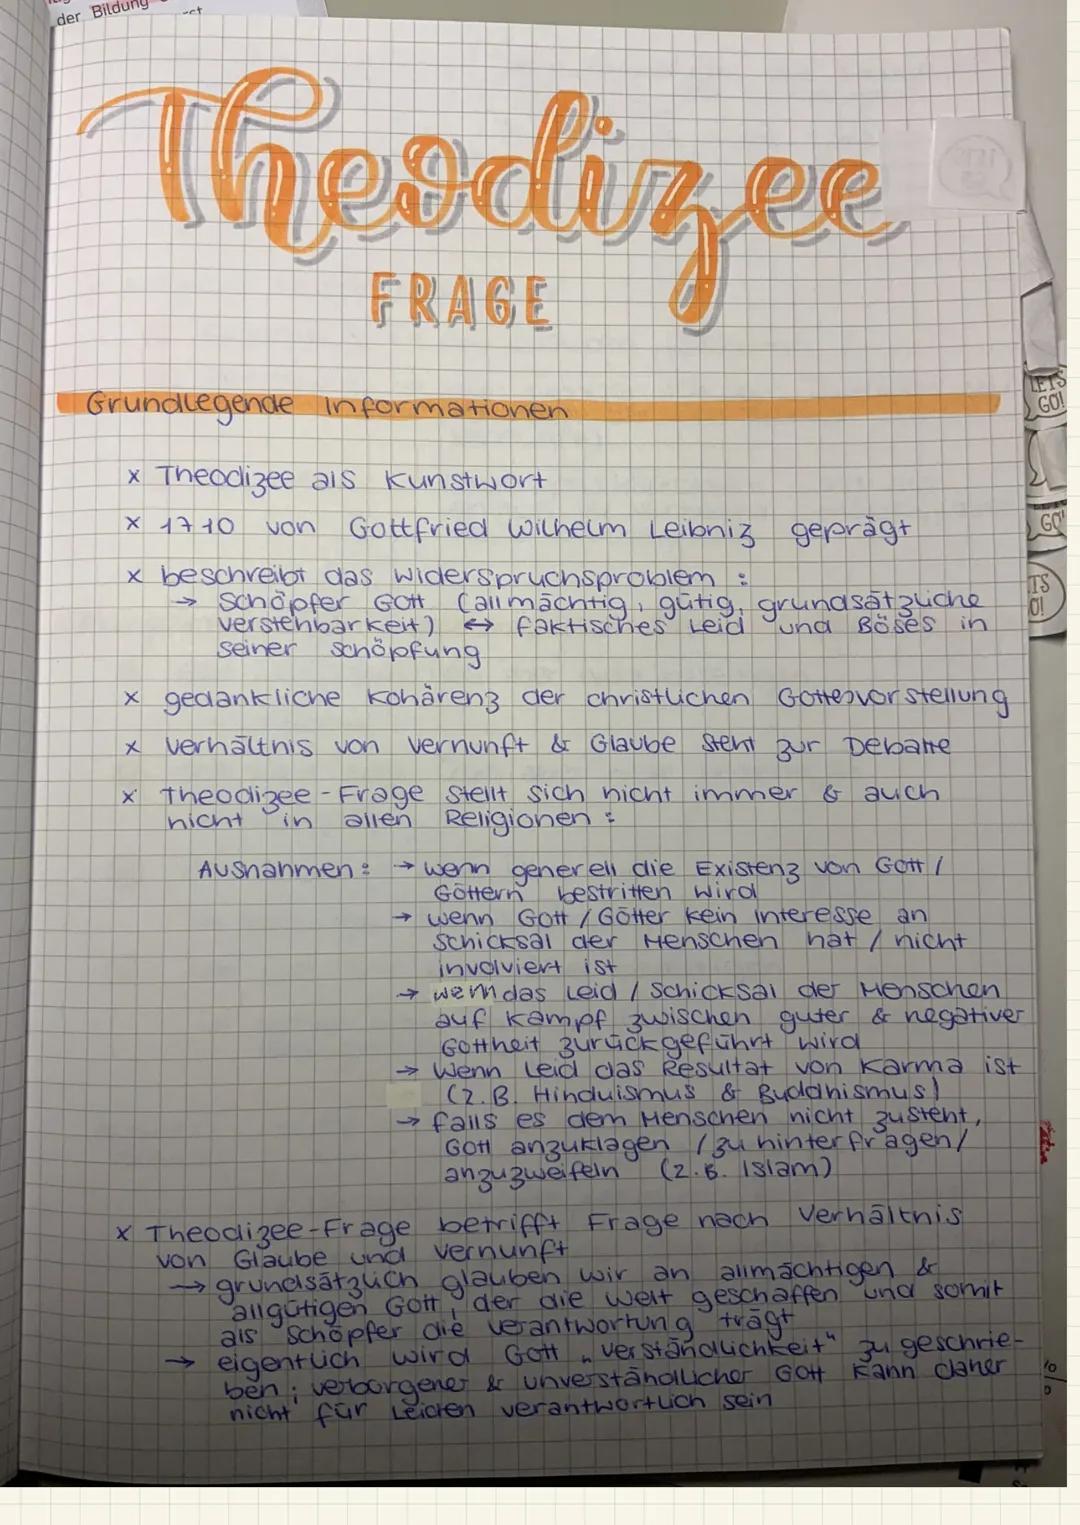 der Bildung
Theodizee
FRAGE
LETS
GO!
Grundlegende Informationen
x Theodizee als Kunstwort
x 1710 von Gottfried Wilhelm Leibniz geprägt
GO!
x beschreibt das Widerspruchsproblem :
→ Schöpfer Gott (allmächtig, gütig, grundsätzliche
Verstehbarkeit) ↔ faktisches Leid und Böses in
seiner Schöpfung
TS
O!
x gedankliche Kohärenz der christlichen Gottesvorstellung
x Verhältnis von Vernunft & Glaube steht zur Debatte
x Theodizee-Frage stellt sich nicht immer & auch
nicht in allen Religionen :
Ausnahmen : → wenn generell die Existenz von Gott /
Göttern bestritten wird
→ wenn Gott / Götter kein Interesse an
Schicksal der Menschen hat / nicht
involviert ist
→ wenn das Leid / Schicksal der Menschen
auf Kampf zwischen guter & negativer
Gottheit zurückgeführt wird
→ Wenn Leid das Resultat von Karma ist
(z.B. Hinduismus & Buddhismus)
→ falls es dem Menschen nicht zusteht,
Gott anzuklagen / zu hinterfragen /
anzuzweifeln (z.B. Islam)
x Theodizee-Frage betrifft Frage nach Verhältnis
von Glaube und Vernunft
→ grundsätzlich glauben wir an allmächtigen &
allgütigen Gott, der die Welt geschaffen und somit
als Schöpfer die Verantwortung trägt
→ eigentlich wird Gott „Verständlichkeit" zu geschrie-
ben ; verborgener & unverständlicher Gott kann daher
nicht für Leiden verantwortlich sein